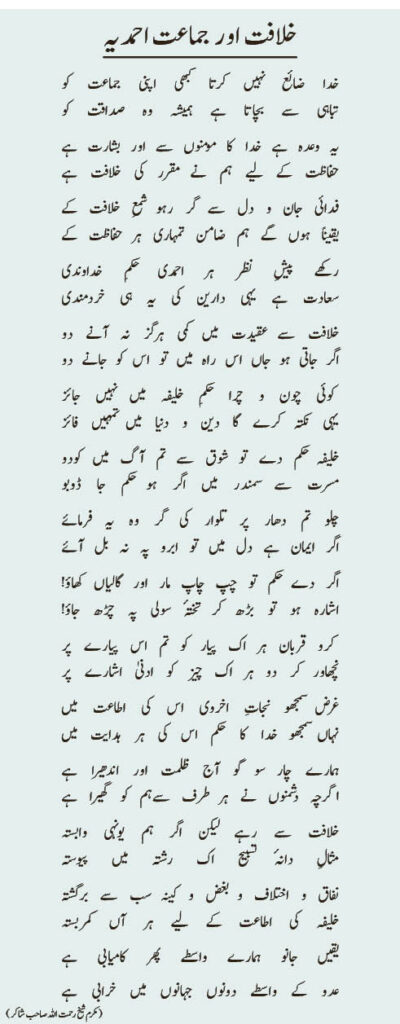 خلافت اور جماعت احمدیہ
خدا ضائع نہیں کرتا کبھی اپنی جماعت کو
تباہی سے بچاتا ہے ہمیشہ وہ صداقت کو
یہ وعدہ ہے خدا کا مومنوں سے اور بشارت ہے
حفاظت کے لیے ہم نے مقرر کی خلافت ہے
فدائی جان و دل سے گر رہو شمعِ خلافت کے
یقیناً ہوں گے ہم ضامن تمہاری ہر حفاظت کے
رکھے پیشِ نظر ہر احمدی حکمِ خداوندی
سعادت ہے یہی دارین کی یہ ہی خردمندی
خلافت سے عقیدت میں کمی ہرگز نہ آنے دو
اگر جاتی ہو جاں اس راہ میں تو اس کو جانے دو
کوئی چون و چرا حکمِ خلیفہ میں نہیں جائز
یہی نکتہ کرے گا دین و دنیا میں تمہیں فائز
خلیفہ حکم دے تو شوق سے تم آگ میں کودو
مسرت سے سمندر میں اگر ہو حکم جا ڈوبو
چلو تم دھار پر تلوار کی گر وہ یہ فرمائے
اگر ایمان ہے دل میں تو ابرو پہ نہ بل آئے
اگر دے حکم تو چپ چاپ مار اور گالیاں کھاؤ!
اشارہ ہو تو بڑھ کر تختۂ سولی پہ چڑھ جاؤ!
کرو قربان ہر اک پیار کو تم اس پیارے پر
نچھاور کر دو ہر اک چیز کو ادنیٰ اشارے پر
غرض سمجھو نجاتِ اخروی اس کی اطاعت میں
نہاں سمجھو خدا کا حکم اس کی ہر ہدایت میں
ہمارے چار سو گو آج ظلمت اور اندھیرا ہے
اگرچہ دشمنوں نے ہر طرف سے ہم کو گھیرا ہے
خلافت سے رہے لیکن اگر ہم یونہی وابستہ
مثالِ دانۂ تسبیح اک رشتہ میں پیوستہ
نفاق و اختلاف و بغض و کینہ سب سے برگشتہ
خلیفہ کی اطاعت کے لیے ہر آں کمربستہ
یقیں جانو ہمارے واسطے پھر کامیابی ہے
عدو کے واسطے دونوں جہانوں میں خرابی ہے
(مکرم شیخ رحمت اللہ صاحب شاکر)